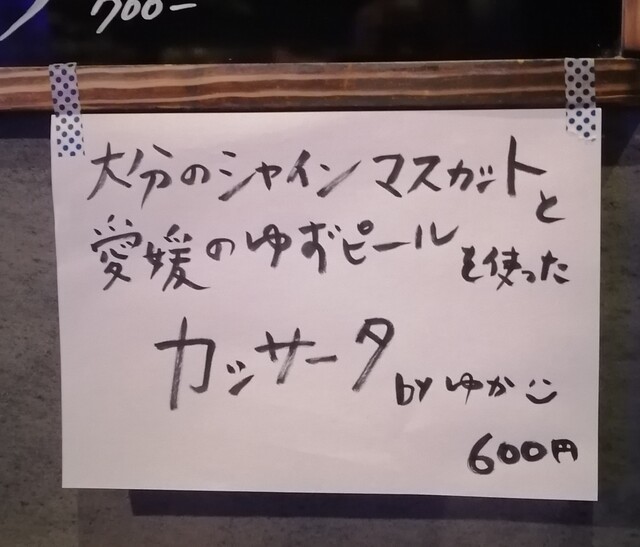 700-
大分のシャインマスカットと
愛媛のゆずピールを使った
カッサータ by ゆか
600円